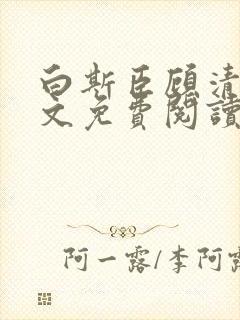 白斯臣顾清
文免費閱讀
阿一露/李阿露